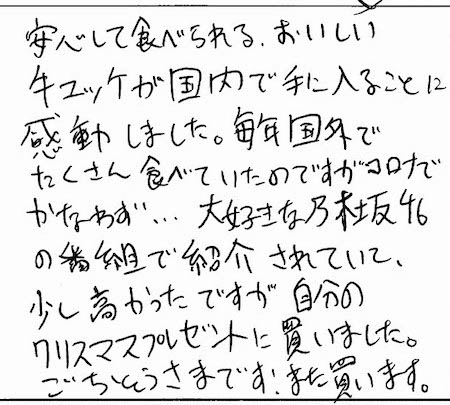 安心して食べられる、おいしい
牛ユッケが国内で手に入ることに
感動しました。毎年国外で
たくさん食べていたのですがコロナで
かなわず… 大好きな乃木坂46
の番組で紹介されていて、
少し高かったですが自分の
クリスマスプレゼントに買いました。
ごちそうさまです！また買います。